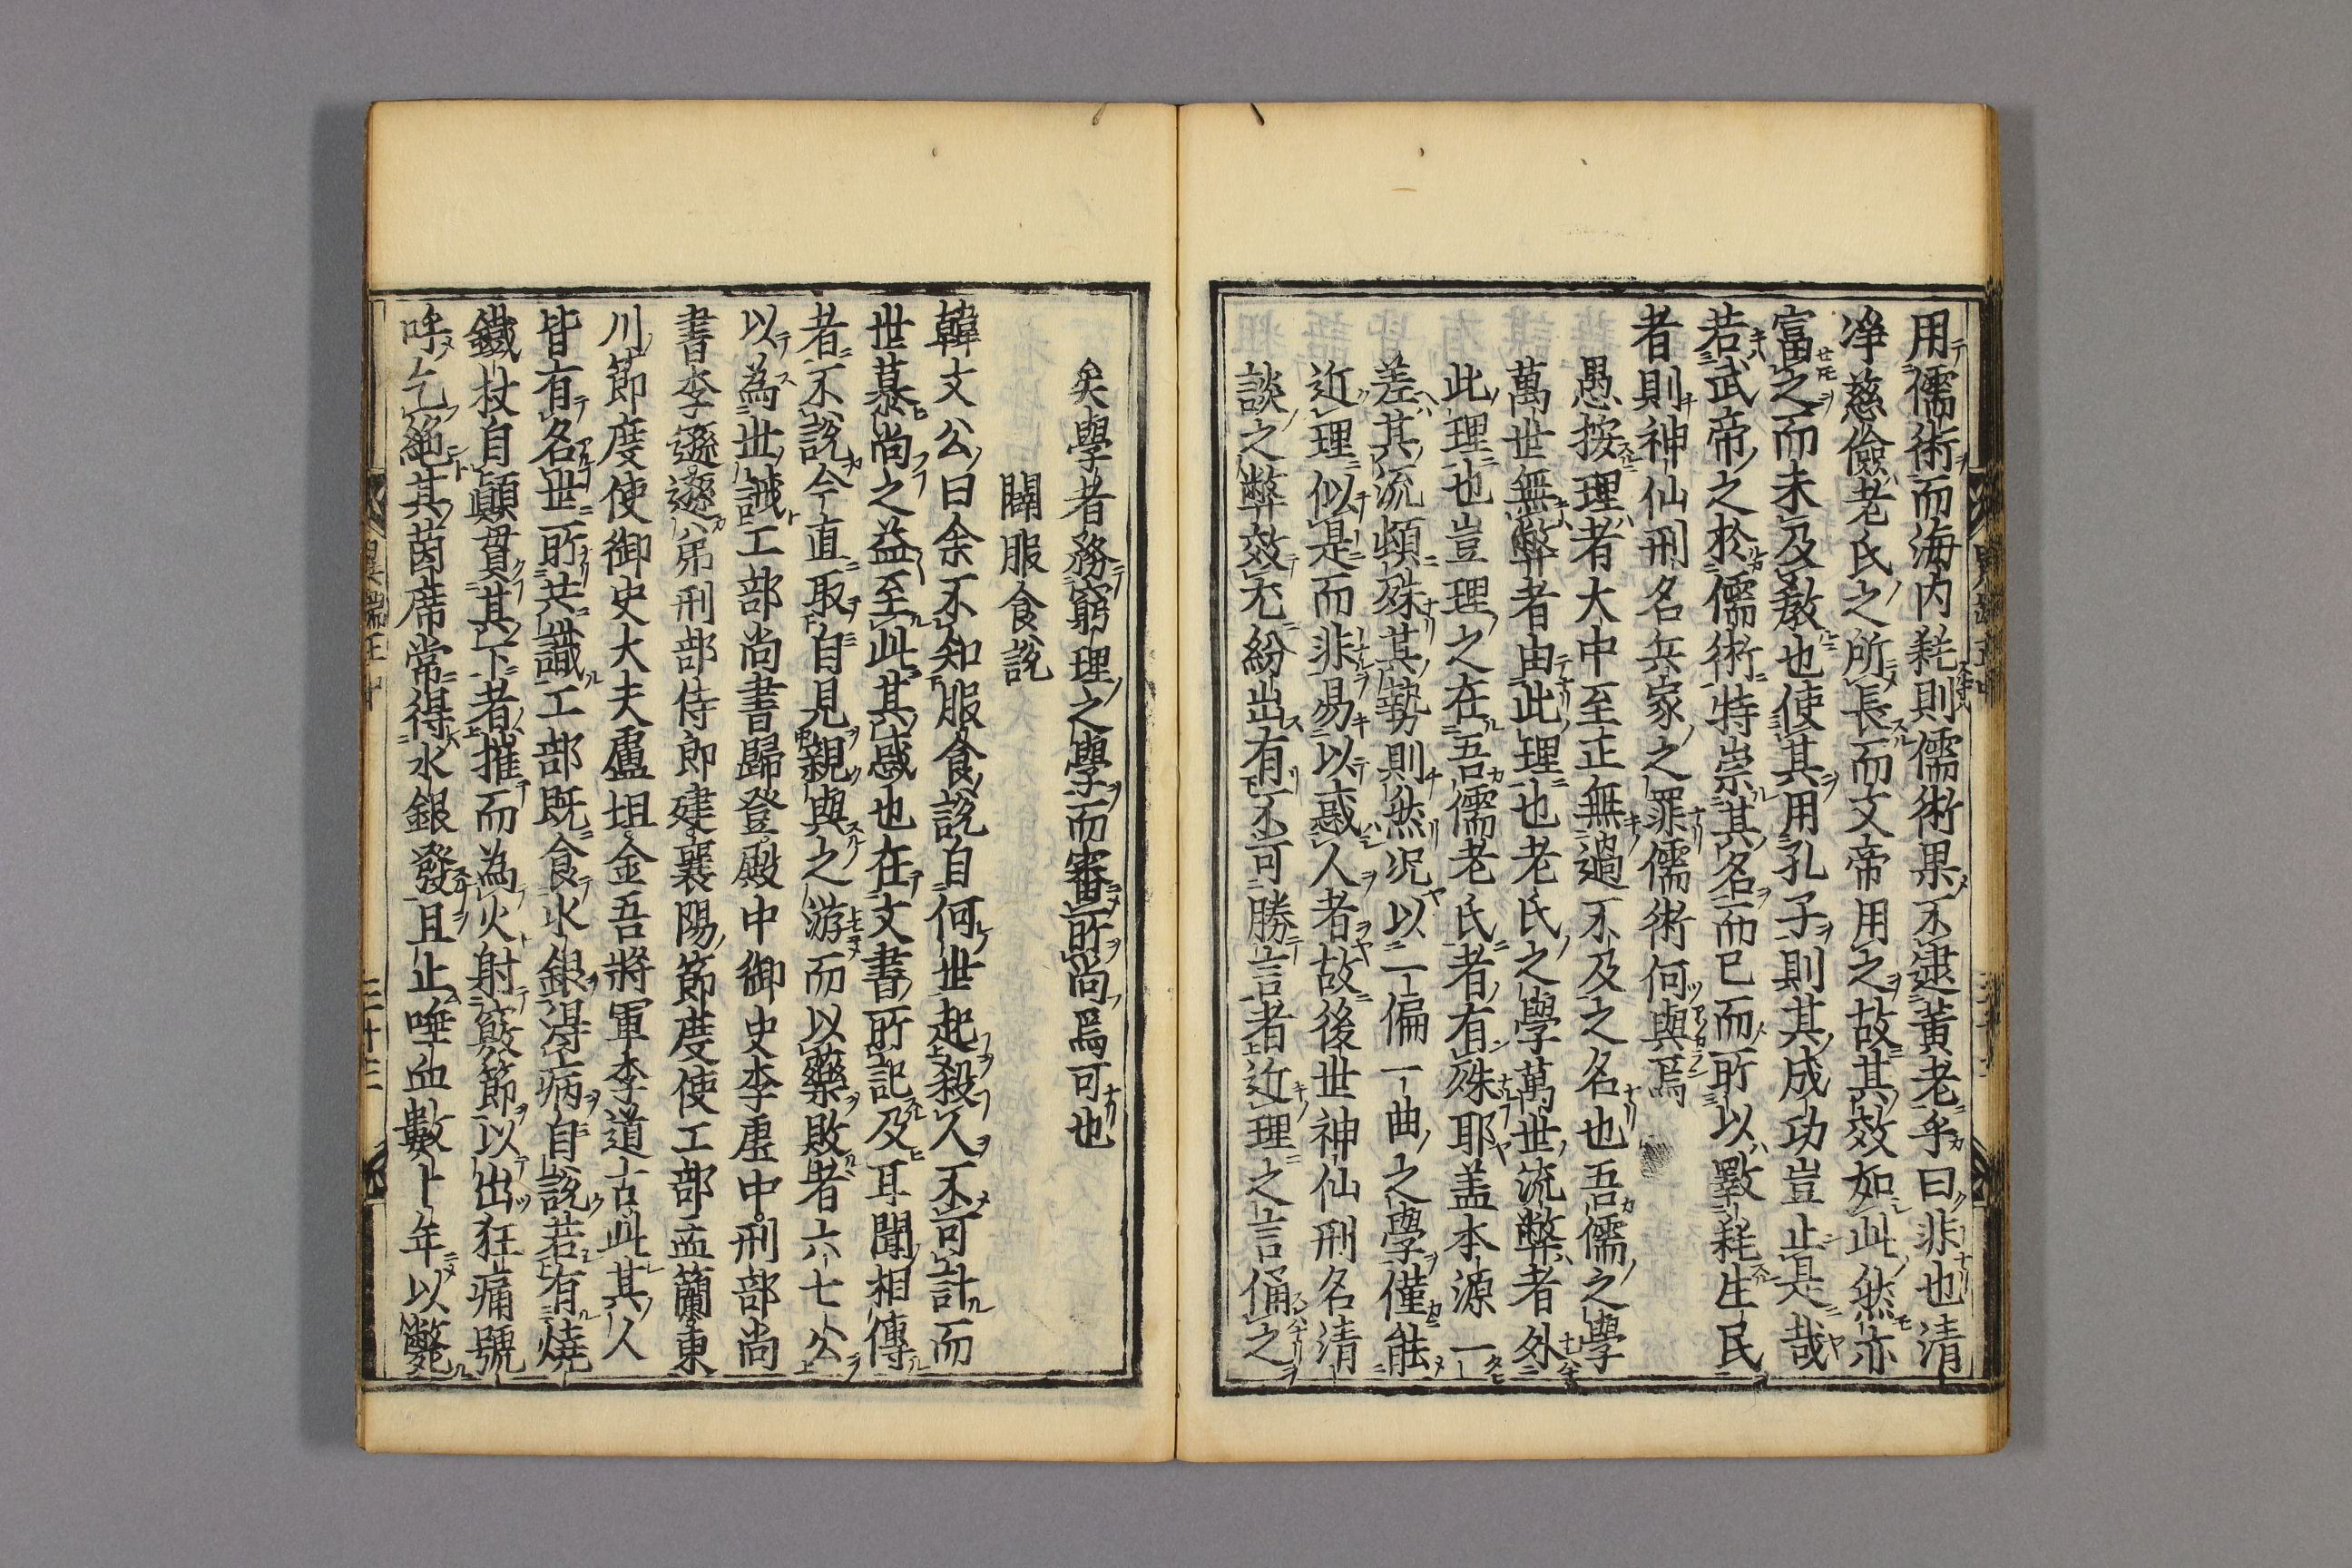 用儒術而海内耗則儒術果不逮黃老乎曰非也清
淨慈儉老氏之所長而文帝用之故其效如此然亦
富之而未及敎也使其用孔子則其成功豈止是哉
若武帝之於儒術特崇其名而已而所以斁耗生民
者則神仙刑名兵家之罪儒術何與焉
愚按理者大中至正無過不及之名也吾儒之學
萬世無弊者由此理也老氏之學萬世流弊者外
此理也豈理之在吾儒老氏者有殊耶盖本源一
差其流頓殊其勢則然况以一偏一曲之學僅能
近理似是而非易以惑人者故後世神仙刑名清
談之弊效尤紛出有不可勝言者近理之言俑之
矣學者務窮理之學而審所尚焉可也
闢服食說
韓文公曰余不知服食說自何世起殺人不可計而
世慕尚之益至此其惑也在文書所記及耳聞相傳
者不說今直取自見親與之游而以藥敗者六七公
以為世誡工部尚書歸登殿中御史李虛中刑部尚
書李遜遜弟刑部侍郎建襄陽節度使工部孟簡東
川節度使御史大夫盧坦金吾將軍李道古此其人
皆有名世所共識工部既食水銀得病自說若有燒
鐵杖自顚貫其下者摧而為火射竅節以出狂痛號
呼乞絕其茵席常得水銀發且止唾血數十年以斃
異端正中
三十三